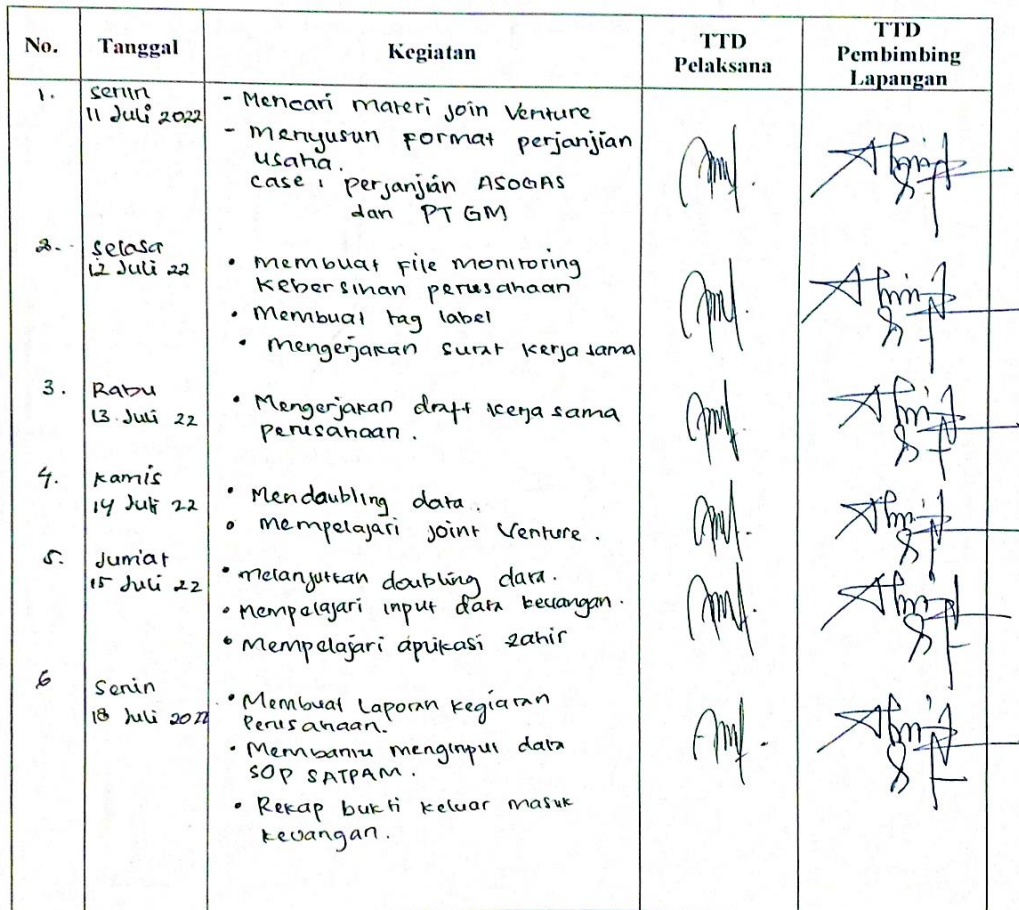 No. Tanggal Kegiatan TTD Pelaksana TTD Pembimbing Lapangan
1. Senin
11 Juli 2022
- Mencari materi join Venture
- Menyusun format perjanjian
usaha.
case : perjanjian ASOGAS
dan PT GM
2. Selasa
12 Juli 22
• Membuat file monitoring
kebersihan perusahaan
• Membuat tag label
• mengerjakan surat kerja sama
3. Rabu
13 Juli 22
• Mengerjakan draft kerja sama
perusahaan.
4. Kamis
14 Juli 22
• Mendaubling data.
• Mempelajari joint Venture.
5. Jumat
15 Juli 22
• melanjutkan daubling data.
• Mempelajari input data keuangan.
• Mempelajari aplikasi zahir
6 Senin
18 Juli 2022
• Membuat Laporan kegiatan
Perusahaan.
• Membantu menginput data
SOP SATPAM.
• Rekap bukti keluar masuk
keuangan.